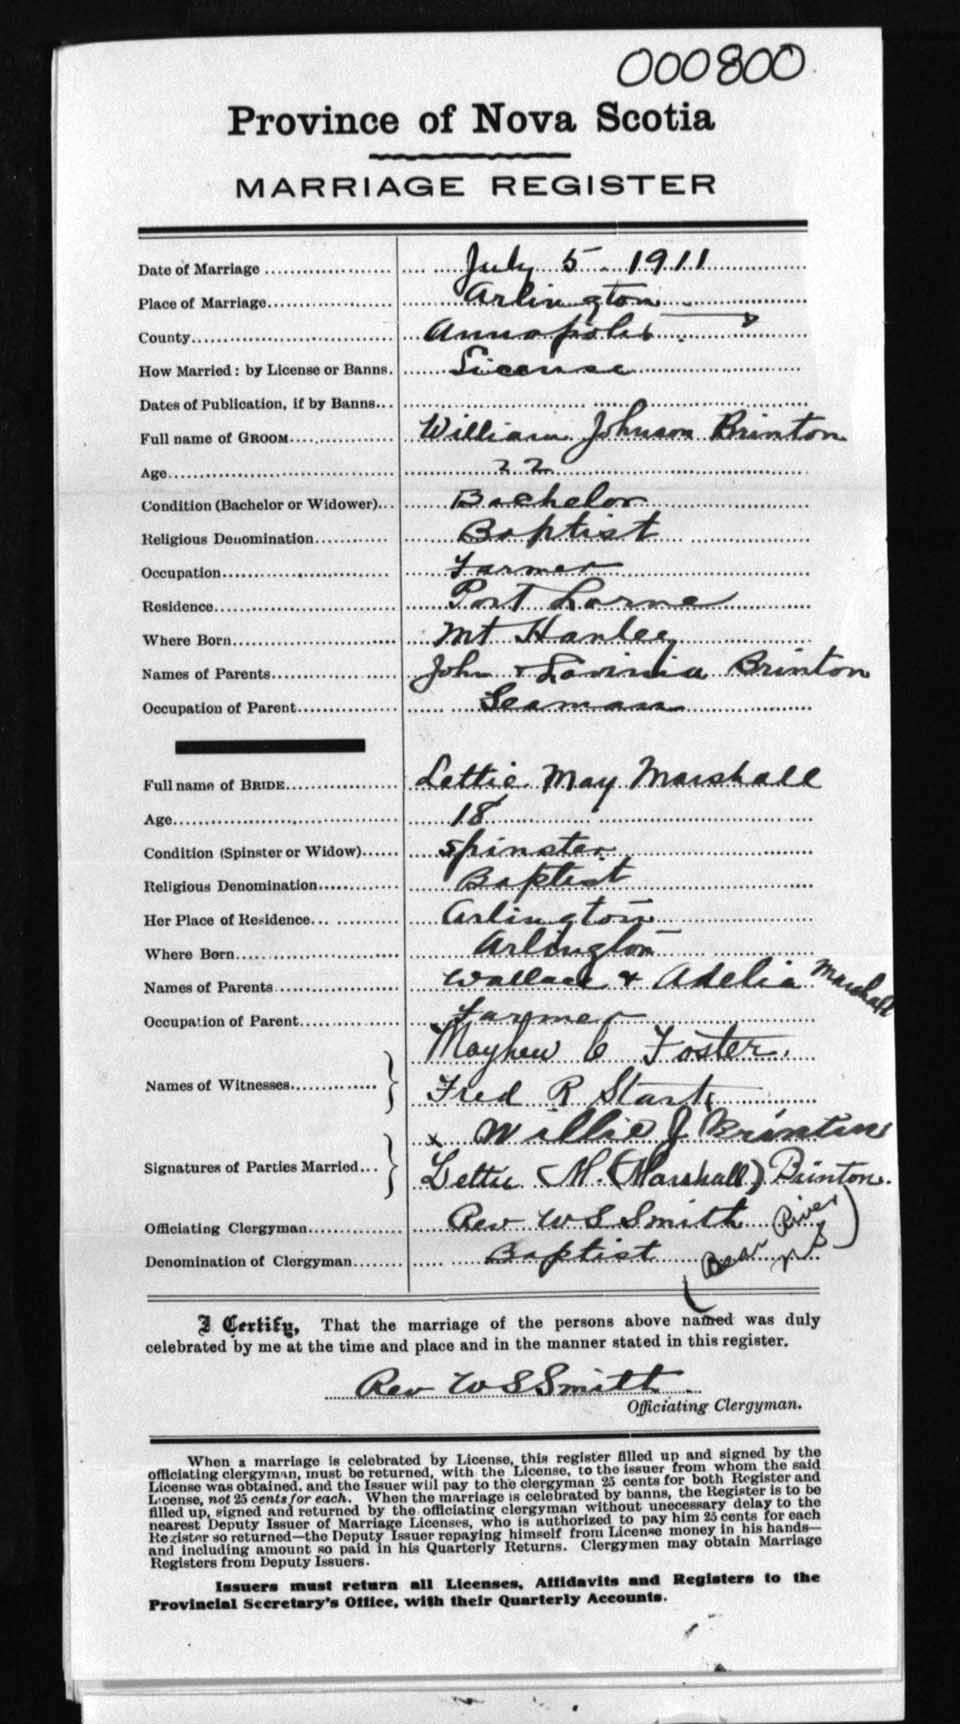 000800
Province of Nova Scotia
MARRIAGE REGISTER
Date of Marriage July 5. 1911
Place of Marriage Arlington
County Annapolis
How Married: by License or Banns. License
Dates of Publication, if by Banns
Full name of GROOM William Johnson Brinton
Age 22
Condition (Bachelor or Widower) Bachelor
Religious Denomination Baptist
Occupation Farmer
Residence Port Lorne
Where Born Mt Hanley
Names of Parents John & Lavinia Brinton
Occupation of Parent Seaman
Full name of BRIDE Lettie May Marshall
Age 18
Condition (Spinster or Widow) Spinster
Religious Denomination Baptist
Her Place of Residence Arlington
Where Born Arlington
Names of Parents Wallace & Adelia Marshall
Occupation of Parent Farmer
Mayhew C Foster.
Names of Witnesses
Fred R Stark
x Willie J Brinton
Signatures of Parties Married
Lettie M. (Marshall) Brinton.
Officiating Clergyman Rev W S Smith
Denomination of Clergyman Baptist (Bear River N S)
I Certify, That the marriage of the persons above named was duly
celebrated by me at the time and place and in the manner stated in this register.
Rev W S Smith
Officiating Clergyman.
When a marriage is celebrated by License, this register filled up and signed by the
officiating clergyman, must be returned, with the License, to the issuer from whom the said
License was obtained, and the Issuer will pay to the clergyman 25 cents for both Register and
License, not 25 cents for each. When the marriage is celebrated by banns, the Register is to be
filled up, signed and returned by the officiating clergyman without unnecessary delay to the
nearest Deputy Issuer of Marriage Licenses, who is authorized to pay him 25 cents for each
Register so returned—the Deputy Issuer repaying himself from License money in his hands—
and including amount so paid in his Quarterly Returns. Clergymen may obtain Marriage
Registers from Deputy Issuers.
Issuers must return all Licenses, Affidavits and Registers to the
Provincial Secretary's Office, with their Quarterly Accounts.